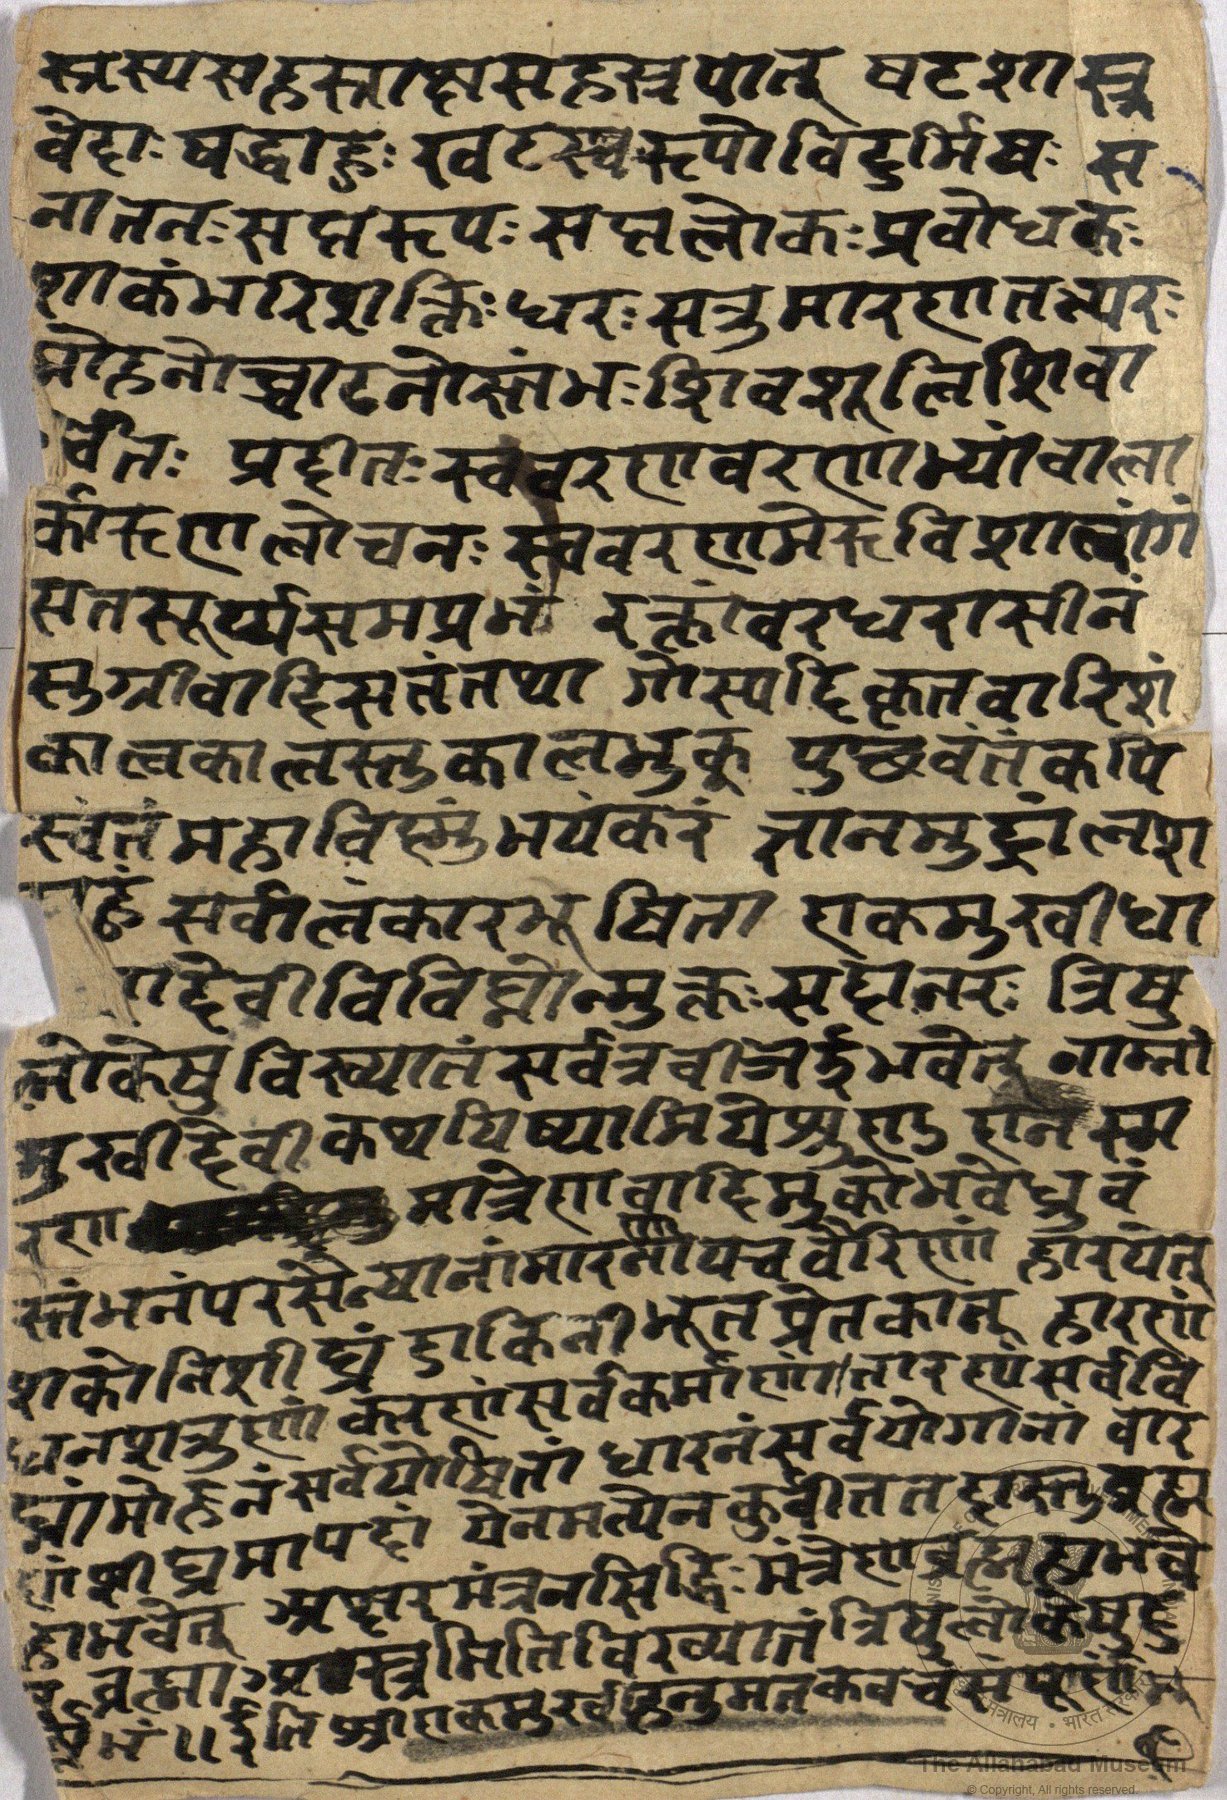 स्त्रस्यसहस्त्राक्षसहस्त्रपात् षटशास्त्र
वेदाः षद्वाहुः खटस्वरूपो विदुर्मिषः स
नातनः सप्तरूपः सप्तलोकः प्रवोधकः
शाकंभरिशक्तिः धरः सत्रुमारणतत्परः
मोहनोच्चाटनोस्तंभः शिवशूलिशिवा
र्चितः प्रदीतः स्ववरणवरणाभ्यां वाला
र्कारुणलोचनः स्ववरणमेरुविशालांगं
सतसूर्य्यसमप्रभं रक्तांवरधरासीनं
सुग्रीवादिसतंतथा गोस्पदिकृतवारिशं
कालकालस्तुकालभुकू पुछवंतंकपि
स्वंतंमहाविष्णुंभयंकरं ज्ञानमुद्रांलश
सर्वालंकारभूषिता एकमुखीधा
देवीविविघ्नोन्मुक्तः सदानरः त्रिषु
लोकेसुविख्यातंसर्वत्रवीजईभवेत् नाम्नो
मुखीदेवीकथयिष्यामियेश्रुणु एनस्मा
रण मात्रेणवादिमुकोभवेध्रुवं
स्तंभनंपरसैन्यानांमारणायचवैरिणां हारयेत्
शाकोनिशीघ्रंडाकिनीभूतप्रेतकान् हारणं
शत्रुणां करणंसर्वकर्माणां तारणंसर्ववि
मोहनंसर्वयोषितां धारनंसर्वयोगीनां वार
शीघ्रमापदां येनमत्येनकुर्वीततदास्तुब्रह्म
हाभवेत् अक्षरमंत्रनसिद्धिः मंत्रेण
ब्रह्मा प्र स्त्रमितिविख्यातं त्रिषुलोकेषुदु
र्लभं ॥ ईतिश्रीएकमुखीहनुमतकवचसंपूर्ण
The Allahabad Museum
© Copyright, All rights reserved.